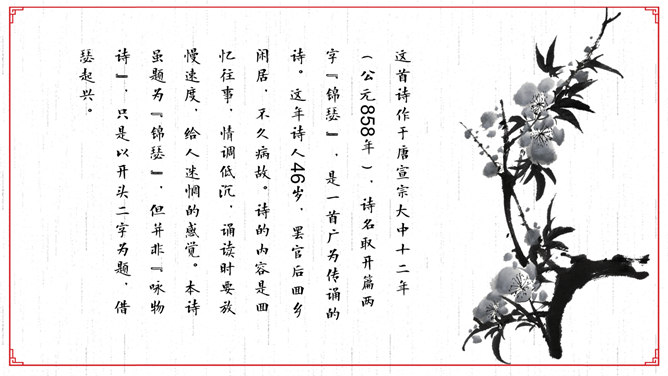 这首诗作于唐宣宗大中十二年
（公元858年），诗名取开篇两
字『锦瑟』，是一首广为传诵的
诗。这年诗人46岁，罢官后回乡
闲居，不久病故。诗的内容是回
忆往事，情调低沉，诵读时要放
慢速度，给人迷惘的感觉。本诗
虽题为『锦瑟』，但并非『咏物
诗』，只是以开头二字为题，借
瑟起兴。